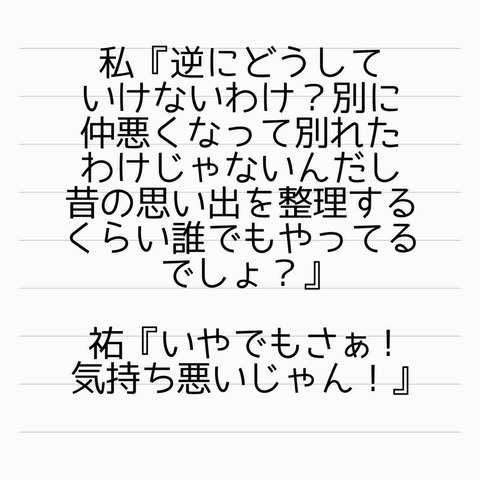 私『逆にどうして
いけないわけ？別に
仲悪くなって別れた
わけじゃないんだし
昔の思い出を整理する
くらい誰でもやってる
でしょ？』
祐『いやでもさぁ！
気持ち悪いじゃん！』